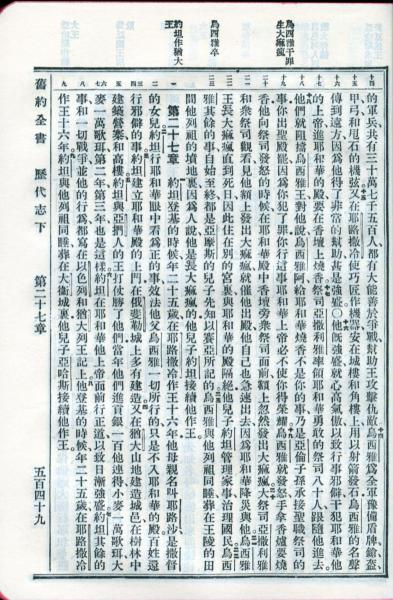 烏西雅干罪
生大痲瘋
烏西雅卒
約坦作猶大
王
的軍兵共有三十萬七千五百人都有大能善於爭戰幫助王攻擊仇敵烏西雅爲全軍預備盾牌鎗盔
甲弓和甩石的機弦又在耶路撒冷使巧匠作機器安在城樓和角樓上用以射箭發石烏西雅的名聲
傳到遠方因爲他得了非常的幫助甚是強盛○他旣強盛就心高氣傲以致行事邪僻干犯耶和華他
的上帝進耶和華的殿要在香壇上燒香祭司亞撒利雅率領耶和華勇敢的祭司八十人跟隨他進去
他們就阻擋烏西雅王對他說烏西雅阿給耶和華燒香不是你的事乃是亞倫子孫承接聖職祭司的
事你出聖殿罷因爲你犯了罪你行這事耶和華上帝必不使你得榮耀烏西雅就發怒手拿香爐要燒
香他向祭司發怒的時候在耶和華殿中香壇旁衆祭司面前額上忽然發出大痲瘋大祭司亞撒利雅
和衆祭司觀看見他額上發出大痲瘋就催他出殿他自己也急速出去因爲耶和華降災與他烏西雅
王長大痲瘋直到死日因此住在別的宮裏與耶和華的殿隔絕他兒子約坦管理家事治理國民烏西
雅其餘的事自始至終都是亞摩斯的兒子先知以賽亞所記的烏西雅與他列祖同睡葬在王陵的田
間他列祖的墳地裏因爲人說他是長大痲瘋的他兒子約坦接續他作王
第二十七章 約坦登基的時候年二十五歲在耶路撒冷作王十六年他母親名叫耶路沙是撒督
的女兒約坦行耶和華眼中看爲正的事效法他父烏西雅一切所行的只是不入耶和華的殿百姓還
行邪僻的事約坦建立耶和華殿的上門在俄斐勒城上多有建造又在猶大山地建造城邑在樹林中
建築營寨和高樓約坦與亞捫人的王打仗勝了他們當年他們進貢銀一百他連得小麥一萬歌珥大
麥一萬歌珥第二年第三年也是這樣約坦在耶和華他上帝面前行正道以致日漸強盛約坦其餘的
事和一切戰爭並他的行爲都寫在以色列和猶大列王記上他登基的時候年二十五歲在耶路撒冷
作王十六年約坦與他列祖同睡葬在大衛城裏他兒子亞哈斯接續他作王
舊約全書 歷代志下 第二十七章 五百四十九